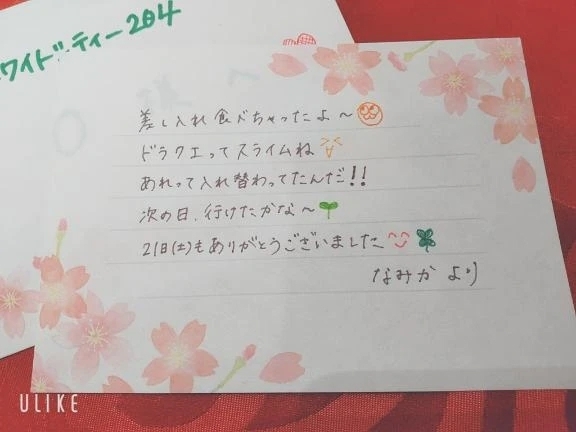 ワイド・ティー204
差し入れ食べちゃったよ〜
ドラクエってスライムね
あれって入れ替わってたんだ!!
次の日、行けたかな〜
21日(土)もありがとうございました
なみか より
ULIKE